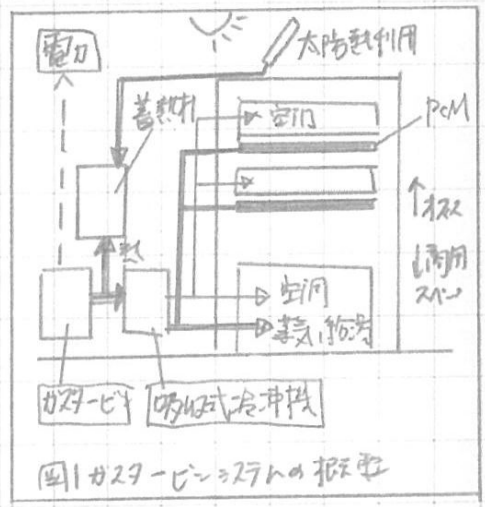 電力
太陽熱利用
蓄熱材
空調
PCM
↑オフィス
↓商用
スペース
熱
空調
蒸気、給湯
ガスタービン
吸収式冷凍機
図1 ガスタービンシステムの概念図